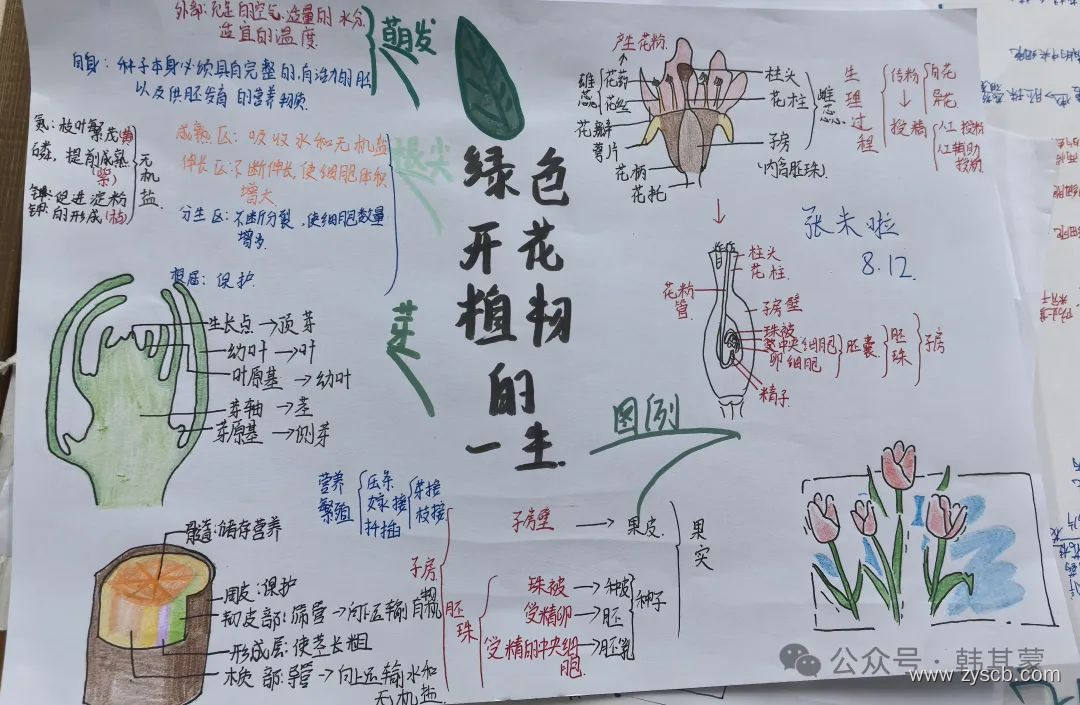 外部:充足的空气、适量的水分
适宜的温度
萌发
自身:种子本身必须具有完整的、有活力的胚
以及供胚发育的营养物质
氮:枝叶繁茂(黄)
磷:提前成熟
(紫)
钾:促进淀粉
的形成(枯)
无机盐
成熟区:吸收水和无机盐
伸长区:不断伸长,使细胞体积
增大
分生区:不断分裂,使细胞数量
增多
根冠:保护
根尖
绿色
开花
植物
的
一生
芽
生长点→顶芽
幼叶→叶
叶原基→幼叶
芽轴→茎
芽原基→侧芽
产生花粉
雄蕊
花药
花丝
花瓣
萼片
花柄
花托
柱头
花柱
子房
(内含胚珠)
雌蕊
生理过程
传粉
↓
受精
自花
异花
人工授粉
人工辅助
授粉
张未啦
8.12
柱头
花柱
花粉管
子房壁
珠被
中央细胞
卵细胞
精子
胚囊
胚珠
子房
图例
营养
繁殖
压条
嫁接
扦插
芽接
枝接
髓:储存营养
周皮:保护
韧皮部:筛管→向下运输有机物
形成层:使茎长粗
木质部:导管→向上运输水和
无机盐
子房
子房壁→果皮
果实
胚珠
珠被→种皮
受精卵→胚
受精的中央细胞→胚乳
种子
公众号·韩其蒙
www.zyscb.com